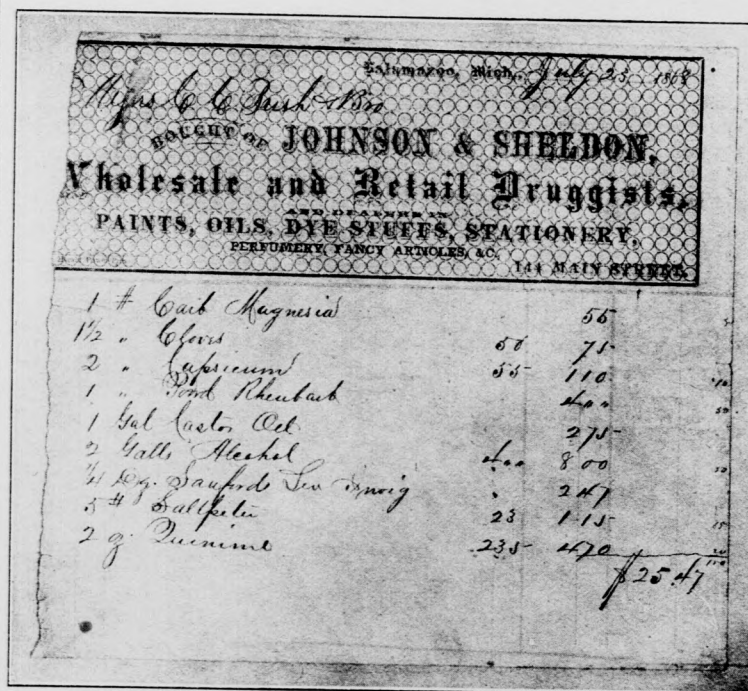 Kalamazoo, Mich., July 23 1868
C C Brush & Bro
BOUGHT OF JOHNSON & SHELDON,
Wholesale and Retail Druggists,
AND DEALERS IN
PAINTS, OILS, DYE STUFFS, STATIONERY,
PERFUMERY, FANCY ARTICLES, &C.
144 MAIN STREET.
1 # Carb Magnesia 55
1½ " Cloves 50 75
2 " Capsicum 55 110
1 " Powd Rheubarb 400
1 Gal Castor Oil 275
2 Galls Alcohol 400 800
Sanfords Liv Invig 247
5 # Saltpeter 23 115
2 oz Quinine 235 470
$25.47